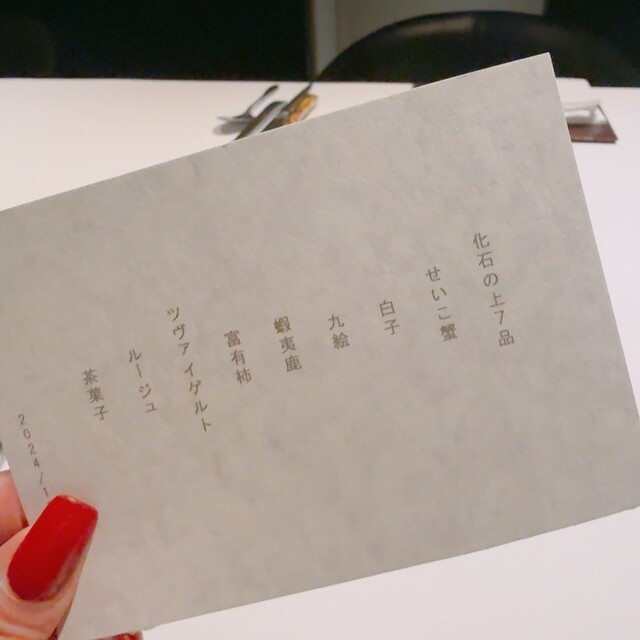 化石の上7品
せいこ蟹
白子
九絵
蝦夷鹿
富有柿
ツヴァイゲルト
ルージュ
茶菓子
2024/1